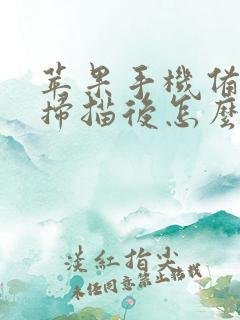 苹果手機備
掃描後怎麼
淡紅指尖
未经同意禁止轉載